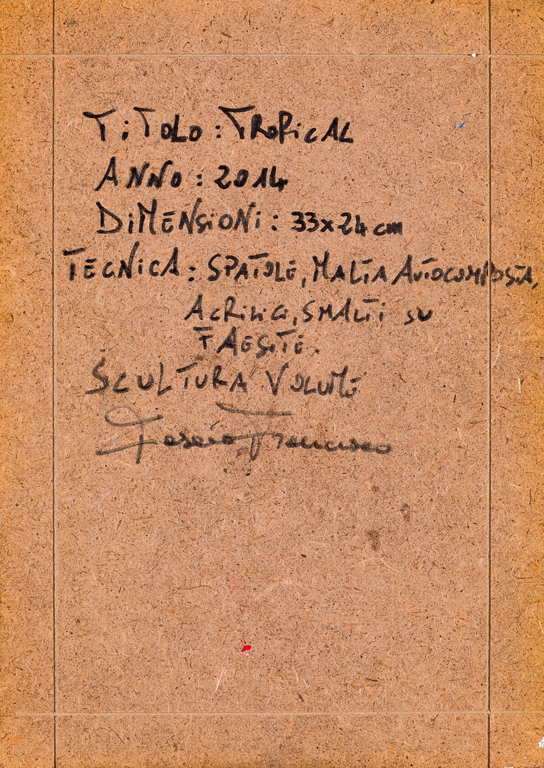 TiTOLO : TROPiCAL
ANNO : 2014
DiMENSiONi : 33x24 cm
TECNiCA : SPATOLE, MALTA AUTOCOMPOSTA,
ACRiLiCi, SMALTi SU
FAESiTE.
SCULTURA VOLUME
Francesco